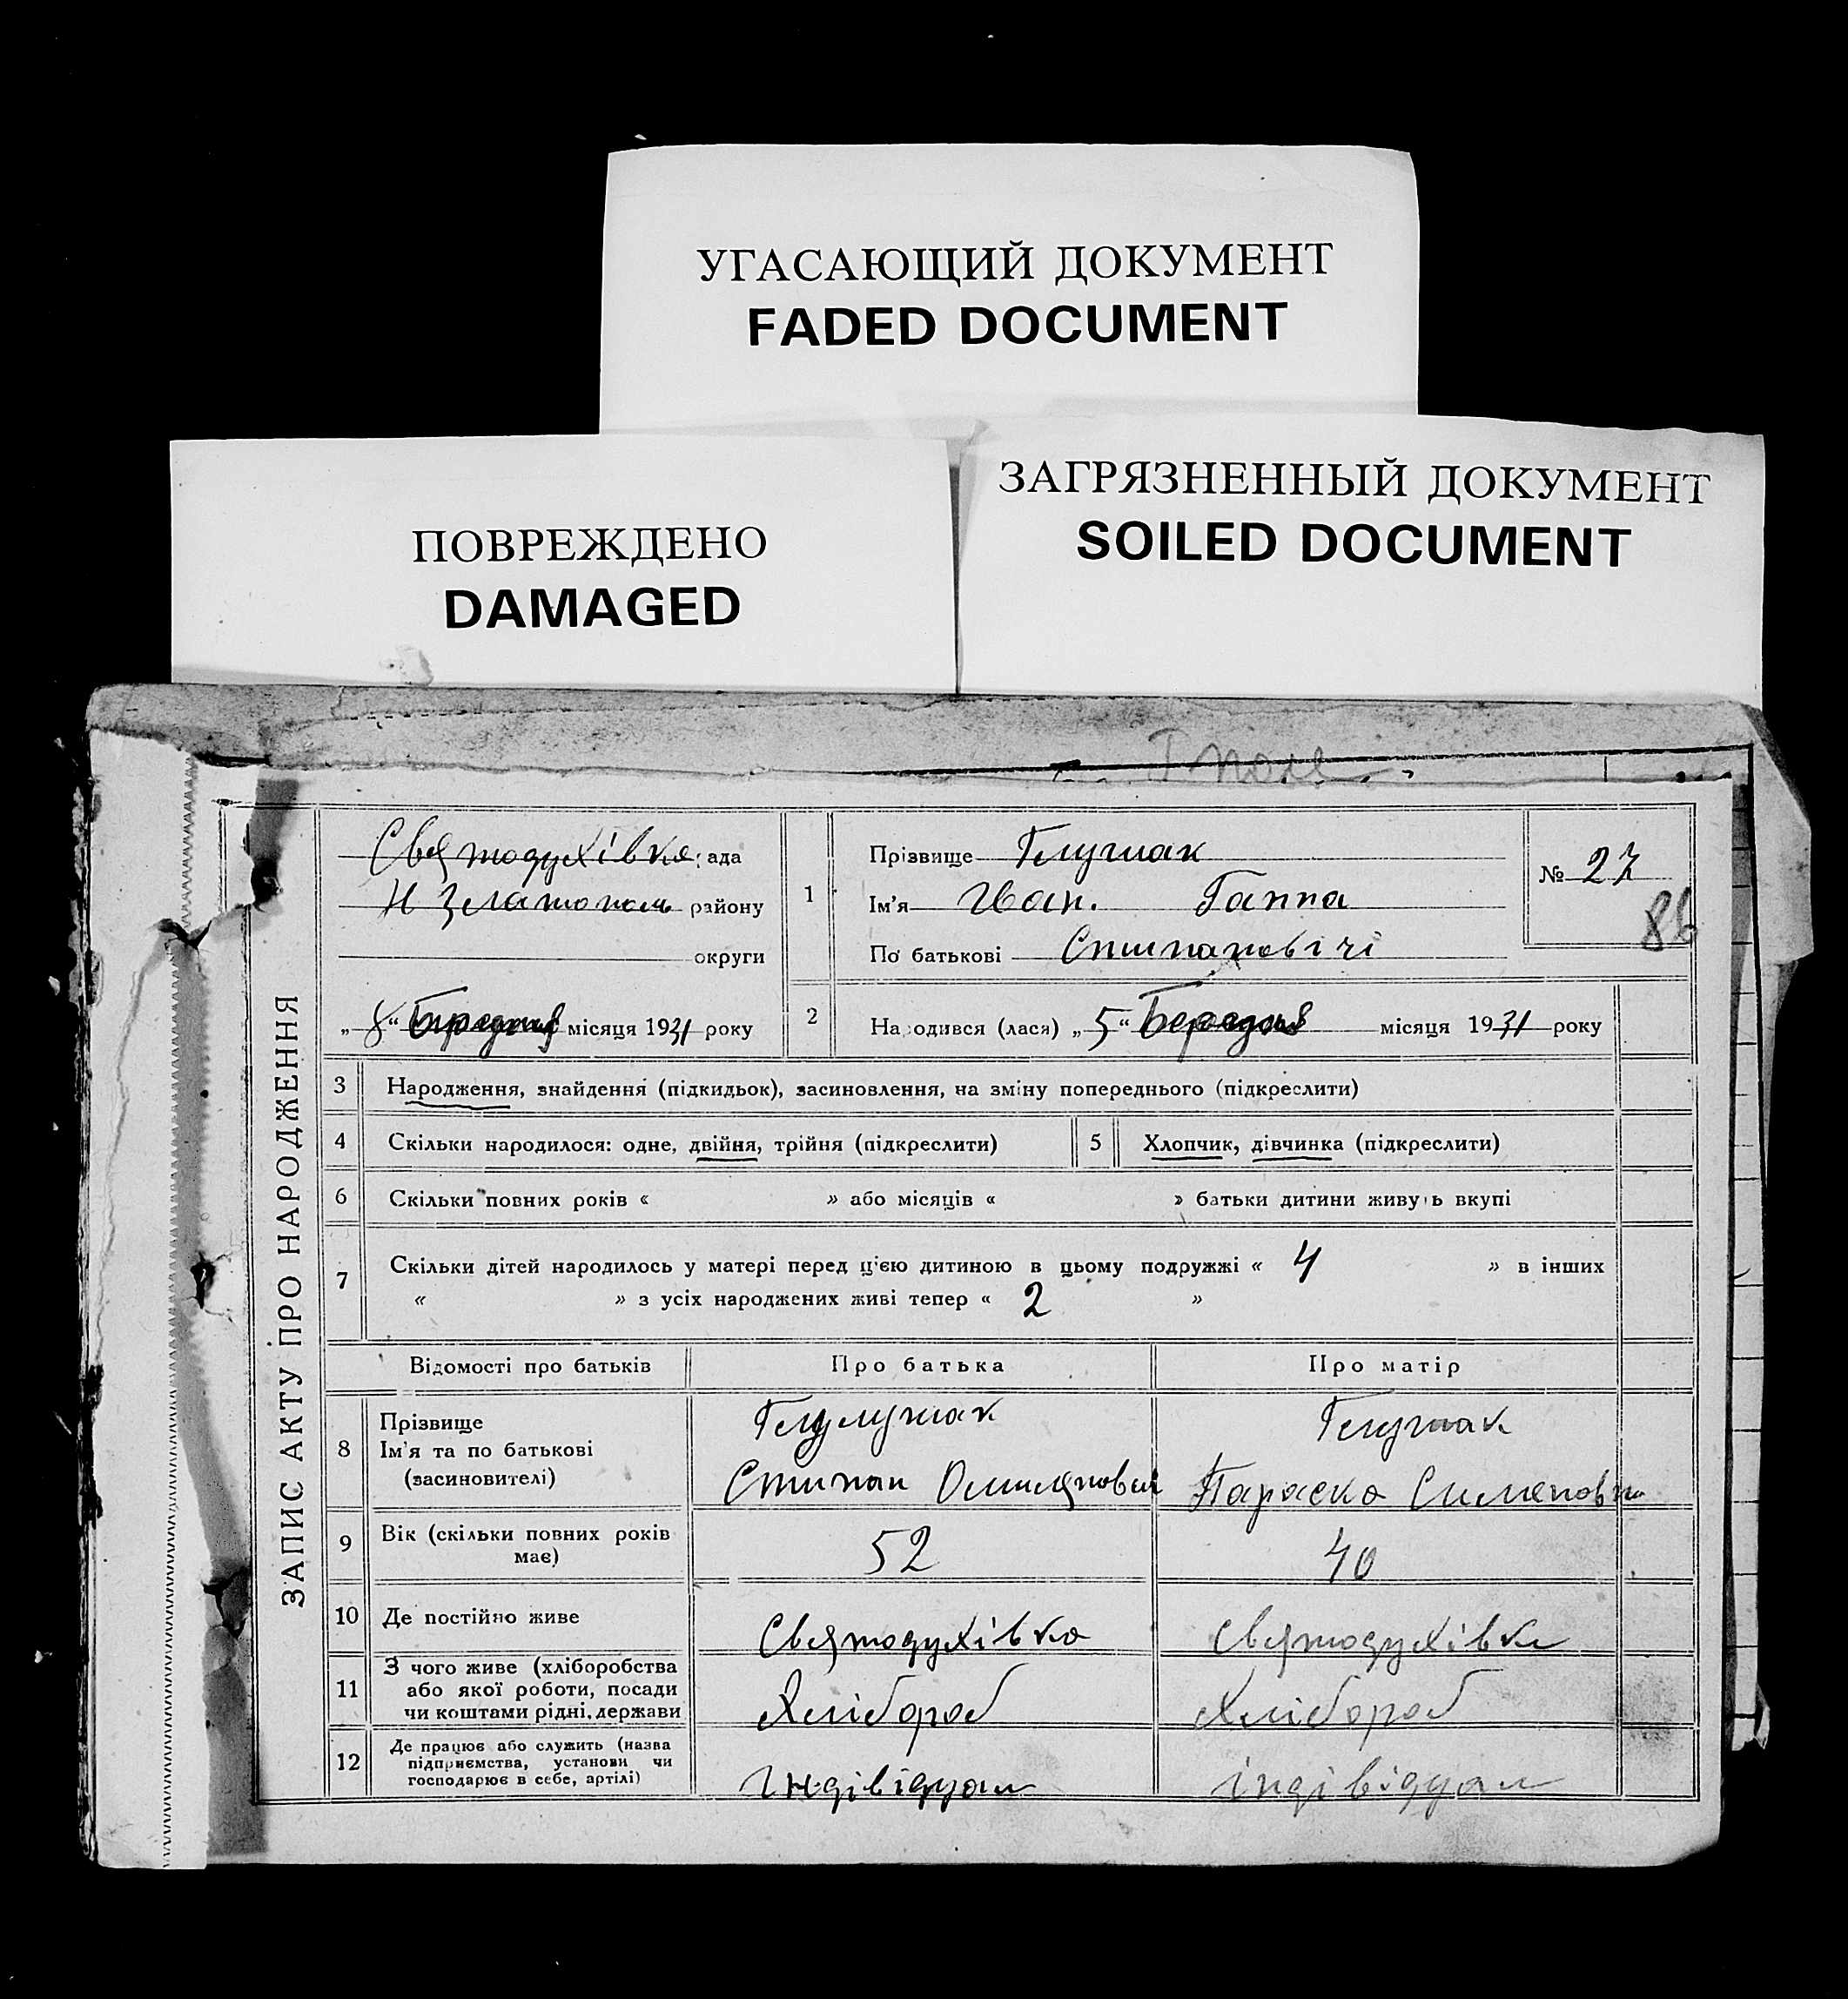 УГАСАЮЩИЙ ДОКУМЕНТ
FADED DOCUMENT
ПОВРЕЖДЕНО
DAMAGED
ЗАГРЯЗНЕННЫЙ ДОКУМЕНТ
SOILED DOCUMENT
ЗАПИС АКТУ ПРО НАРОДЖЕННЯ
Святодухівка рада
Н Златополь району
округи
„8“ Березня місяця 1931 року
1
Прізвище Глушак
Ім'я Іван. Ганна
По батькові Стипановічі
№ 27
86
2
Народився (лася) „5“ Березня місяця 1931 року
3 Народження, знайдення (підкидьок), засиновлення, на зміну попереднього (підкреслити)
4 Скільки народилося: одне, двійня, трійня (підкреслити)
5 Хлопчик, дівчинка (підкреслити)
6 Скільки повних років « » або місяців « » батьки дитини живуть вкупі
7 Скільки дітей народилось у матері перед ц'єю дитиною в цьому подружжі « 4 » в інших
« » з усіх народжених живі тепер « 2 »
Відомості про батьків Про батька Про матір
8 Прізвище
Ім'я та по батькові
(засиновителі)
Глушак
Стипан
Глушак
Параска Сименовна
9 Вік (скільки повних років
має)
52 40
10 Де постійно живе Святодухівка Святодухівка
11 З чого живе (хліборобства
або якої роботи, посади
чи коштами рідні, держави
Хлібороб Хлібороб
12 Де працює або служить (назва
підприємства, установи чи
господарює в себе, артілі)
Индівідуал індівідуал